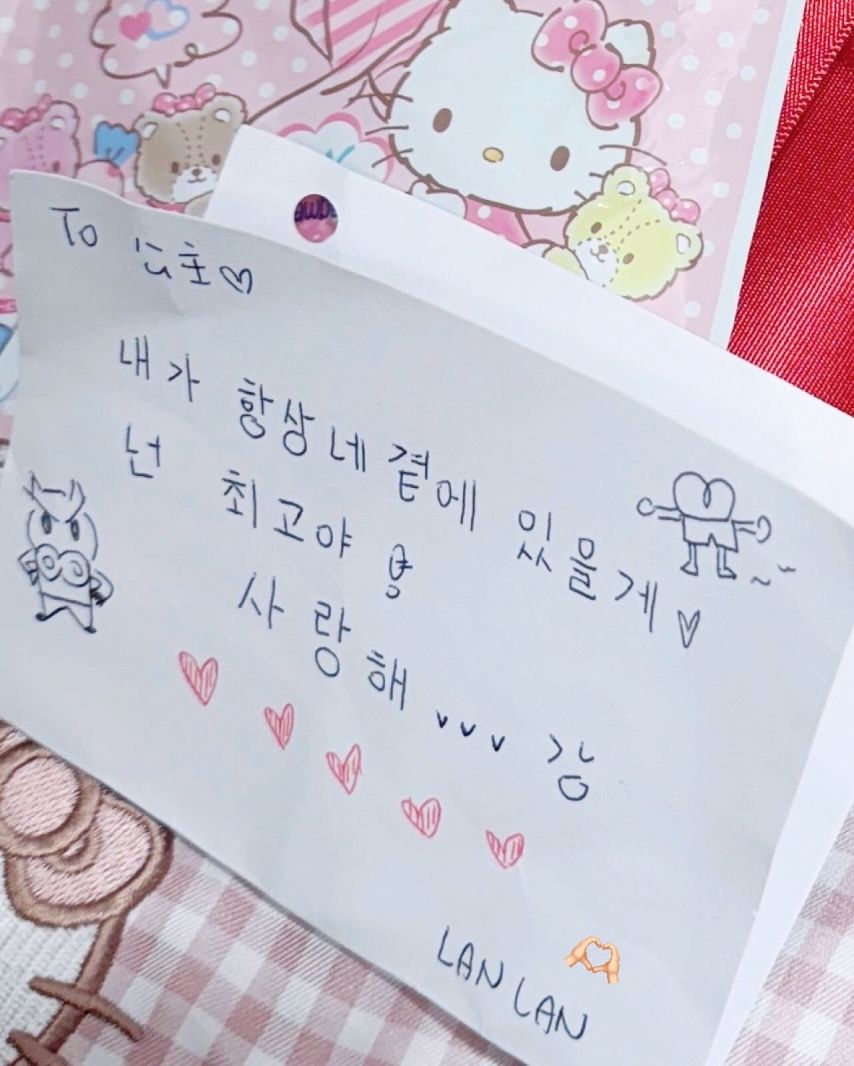 To 공주♡
내가 항상 네 곁에 있을게♡
넌 최고야
사랑해
LAN LAN